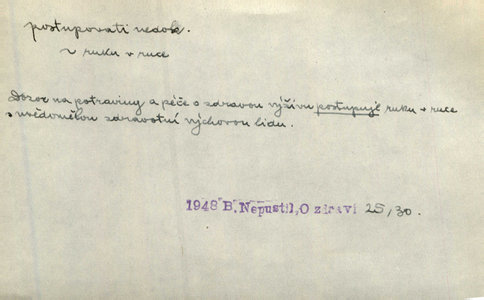 postupovati nedok.
~ ruku v ruce
Dozor na potraviny a péče o zdravou výživu postupují ruku v ruce
s uvědomělou zdravotní výchovou lidu.
1948 B. Nepustil, O zdraví 25, 30.